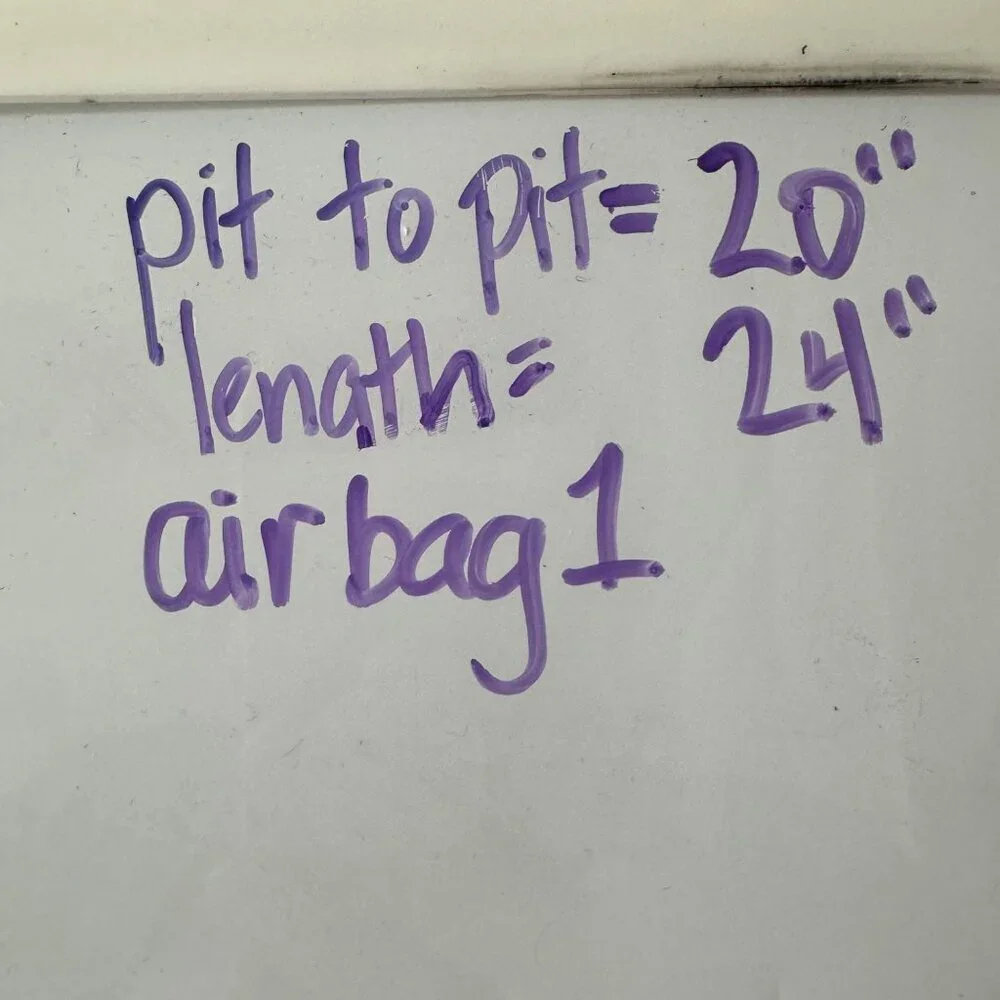 pit to pit = 20"
length = 24"
airbag 1